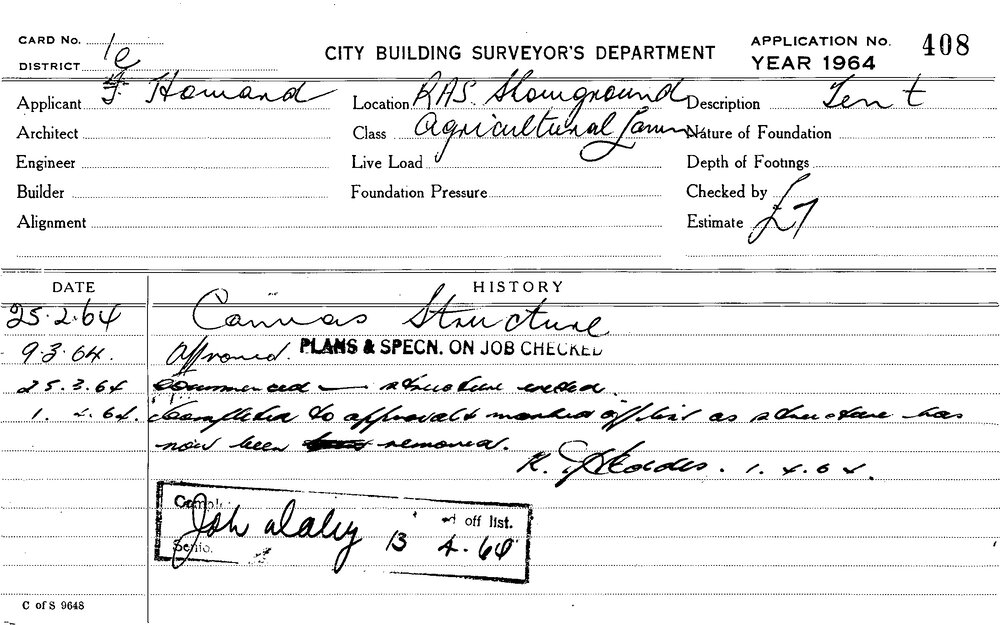 CARD No. 1e
DISTRICT
CITY BUILDING SURVEYOR'S DEPARTMENT
APPLICATION No. 408
YEAR 1964
Applicant F. Howard
Location RAS. Showground
Description Tent
Architect
Class Agricultural Lawn
Nature of Foundation
Engineer
Live Load
Depth of Footings
Builder
Foundation Pressure
Checked by
Alignment
Estimate £7
DATE
HISTORY
25.2.64 Canvas Structure
9.3.64. Approved. PLANS & SPECN. ON JOB CHECKED
25.3.64 Commenced — structure erected.
1.4.64. Completed to approval & marked off list as structure has
now been removed.
K. 1.4.64.
off list.
Joh Daley 13 4.64
Senio.
C of S 9648